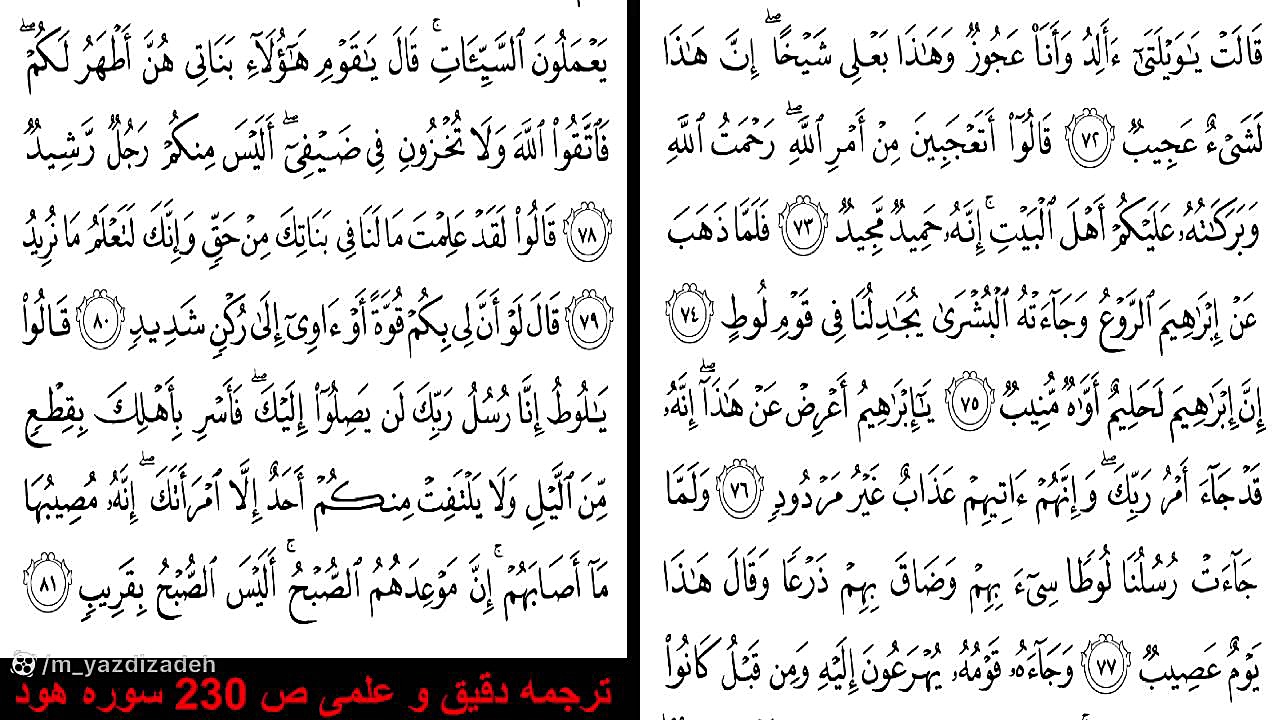 قَالَتْ يَـٰوَيْلَتَىٰٓ ءَأَلِدُ وَأَنَا۠ عَجُوزٌ وَهَـٰذَا بَعْلِى شَيْخًا ۖ إِنَّ هَـٰذَا
لَشَىْءٌ عَجِيبٌ ٧٢ قَالُوٓا۟ أَتَعْجَبِينَ مِنْ أَمْرِ ٱللَّهِ ۖ رَحْمَتُ ٱللَّهِ
وَبَرَكَـٰتُهُۥ عَلَيْكُمْ أَهْلَ ٱلْبَيْتِ ۚ إِنَّهُۥ حَمِيدٌ مَّجِيدٌ ٧٣ فَلَمَّا ذَهَبَ
عَنْ إِبْرَٰهِيمَ ٱلرَّوْعُ وَجَآءَتْهُ ٱلْبُشْرَىٰ يُجَـٰدِلُنَا فِى قَوْمِ لُوطٍ ٧٤
إِنَّ إِبْرَٰهِيمَ لَحَلِيمٌ أَوَّٰهٌ مُّنِيبٌ ٧٥ يَـٰٓإِبْرَٰهِيمُ أَعْرِضْ عَنْ هَـٰذَآ ۖ إِنَّهُۥ
قَدْ جَآءَ أَمْرُ رَبِّكَ ۖ وَإِنَّهُمْ ءَاتِيهِمْ عَذَابٌ غَيْرُ مَرْدُودٍ ٧٦ وَلَمَّا
جَآءَتْ رُسُلُنَا لُوطًا سِىٓءَ بِهِمْ وَضَاقَ بِهِمْ ذَرْعًا وَقَالَ هَـٰذَا
يَوْمٌ عَصِيبٌ ٧٧ وَجَآءَهُۥ قَوْمُهُۥ يُهْرَعُونَ إِلَيْهِ وَمِن قَبْلُ كَانُوا۟
يَعْمَلُونَ ٱلسَّيِّـَٔاتِ ۚ قَالَ يَـٰقَوْمِ هَـٰٓؤُلَآءِ بَنَاتِى هُنَّ أَطْهَرُ لَكُمْ ۖ
فَٱتَّقُوا۟ ٱللَّهَ وَلَا تُخْزُونِ فِى ضَيْفِىٓ ۖ أَلَيْسَ مِنكُمْ رَجُلٌ رَّشِيدٌ
٧٨ قَالُوا۟ لَقَدْ عَلِمْتَ مَا لَنَا فِى بَنَاتِكَ مِنْ حَقٍّ وَإِنَّكَ لَتَعْلَمُ مَا نُرِيدُ
٧٩ قَالَ لَوْ أَنَّ لِى بِكُمْ قُوَّةً أَوْ ءَاوِىٓ إِلَىٰ رُكْنٍ شَدِيدٍ ٨٠ قَالُوا۟
يَـٰلُوطُ إِنَّا رُسُلُ رَبِّكَ لَن يَصِلُوٓا۟ إِلَيْكَ ۖ فَأَسْرِ بِأَهْلِكَ بِقِطْعٍ
مِّنَ ٱلَّيْلِ وَلَا يَلْتَفِتْ مِنكُمْ أَحَدٌ إِلَّا ٱمْرَأَتَكَ ۖ إِنَّهُۥ مُصِيبُهَا
مَآ أَصَابَهُمْ ۚ إِنَّ مَوْعِدَهُمُ ٱلصُّبْحُ ۚ أَلَيْسَ ٱلصُّبْحُ بِقَرِيبٍ ٨١
/m_yazdizadeh
ترجمه دقیق و علمی ص 230 سوره هود